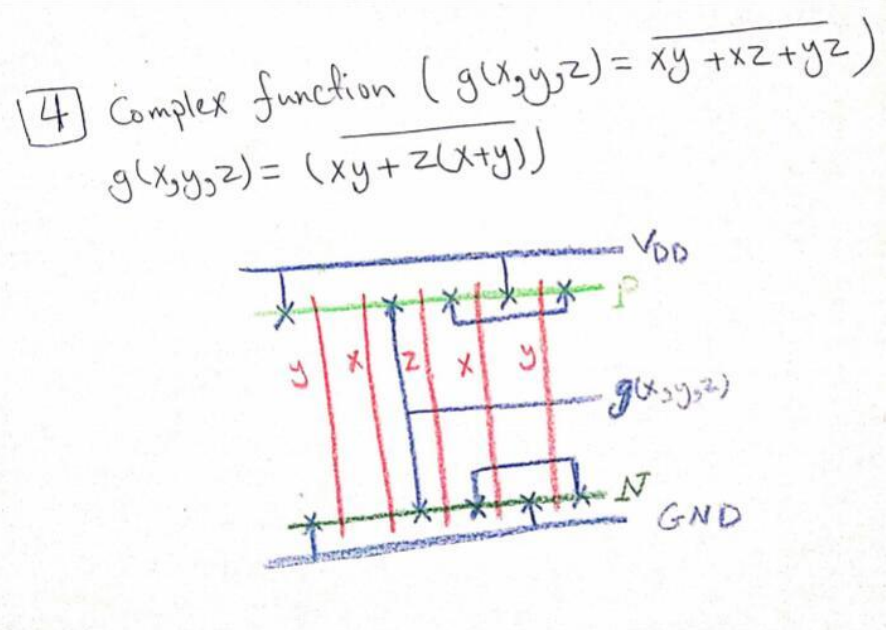 4 Complex function ( g(x,y,z) = \overline{xy + xz + yz} )
g(x,y,z) = (\overline{xy + z(x+y)})
VDD
P
y x z x y
g(x,y,z)
N
GND